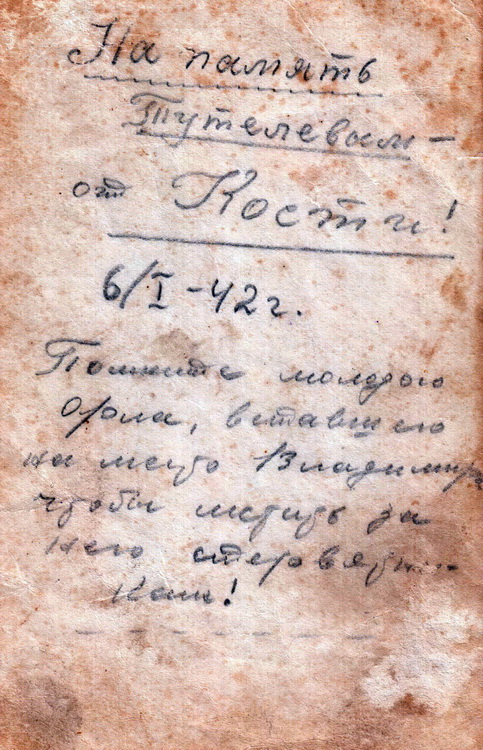 На память
Тутелевым –
от Кости!
6/I – 42 г.
Помните молодого
орла, вставшего
на место Владимира
чтобы мстить за
него стервятни-
кам!